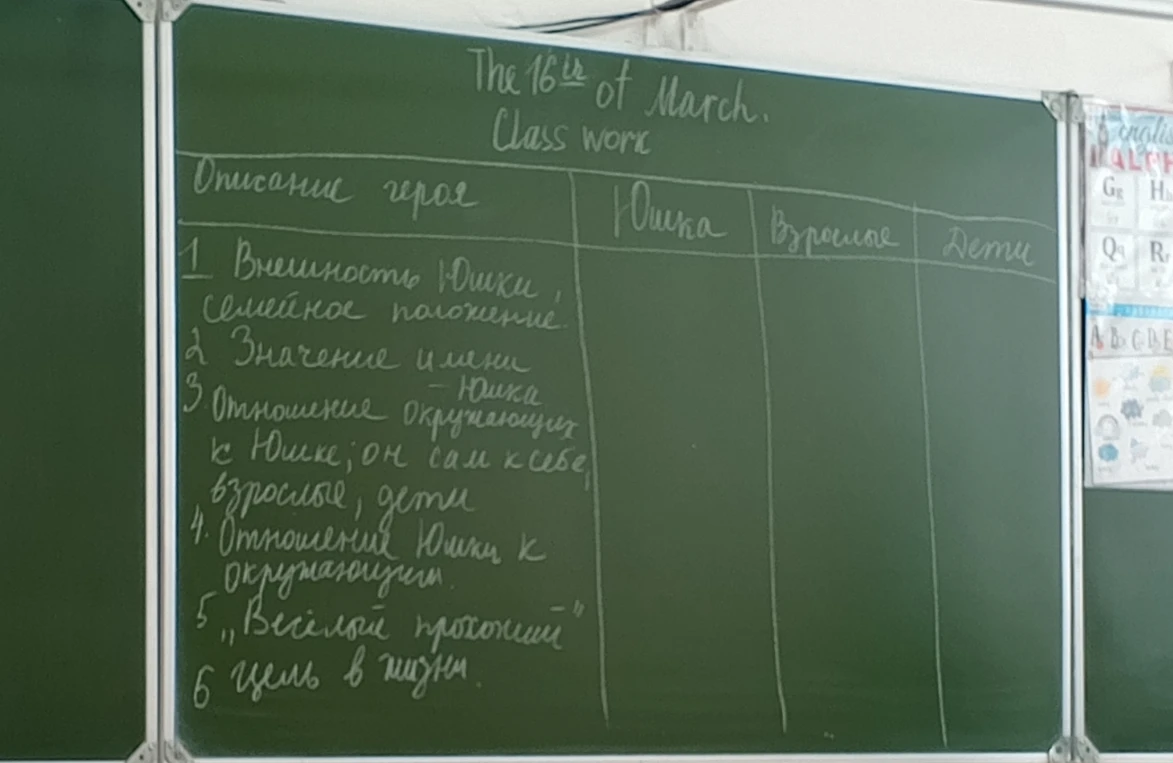 The 16th of March.
Class work
Описание героя Юшка Взрослые Дети
1 Внешность Юшки,
семейное положение.
2 Значение имени
- Юшка
3. Отношение окружающих
к Юшке; он сам к себе,
взрослые, дети
4. Отношение Юшки к
окружающим.
5 „Весёлый прохожий"
6 Цель в жизни.
Gg
Qq